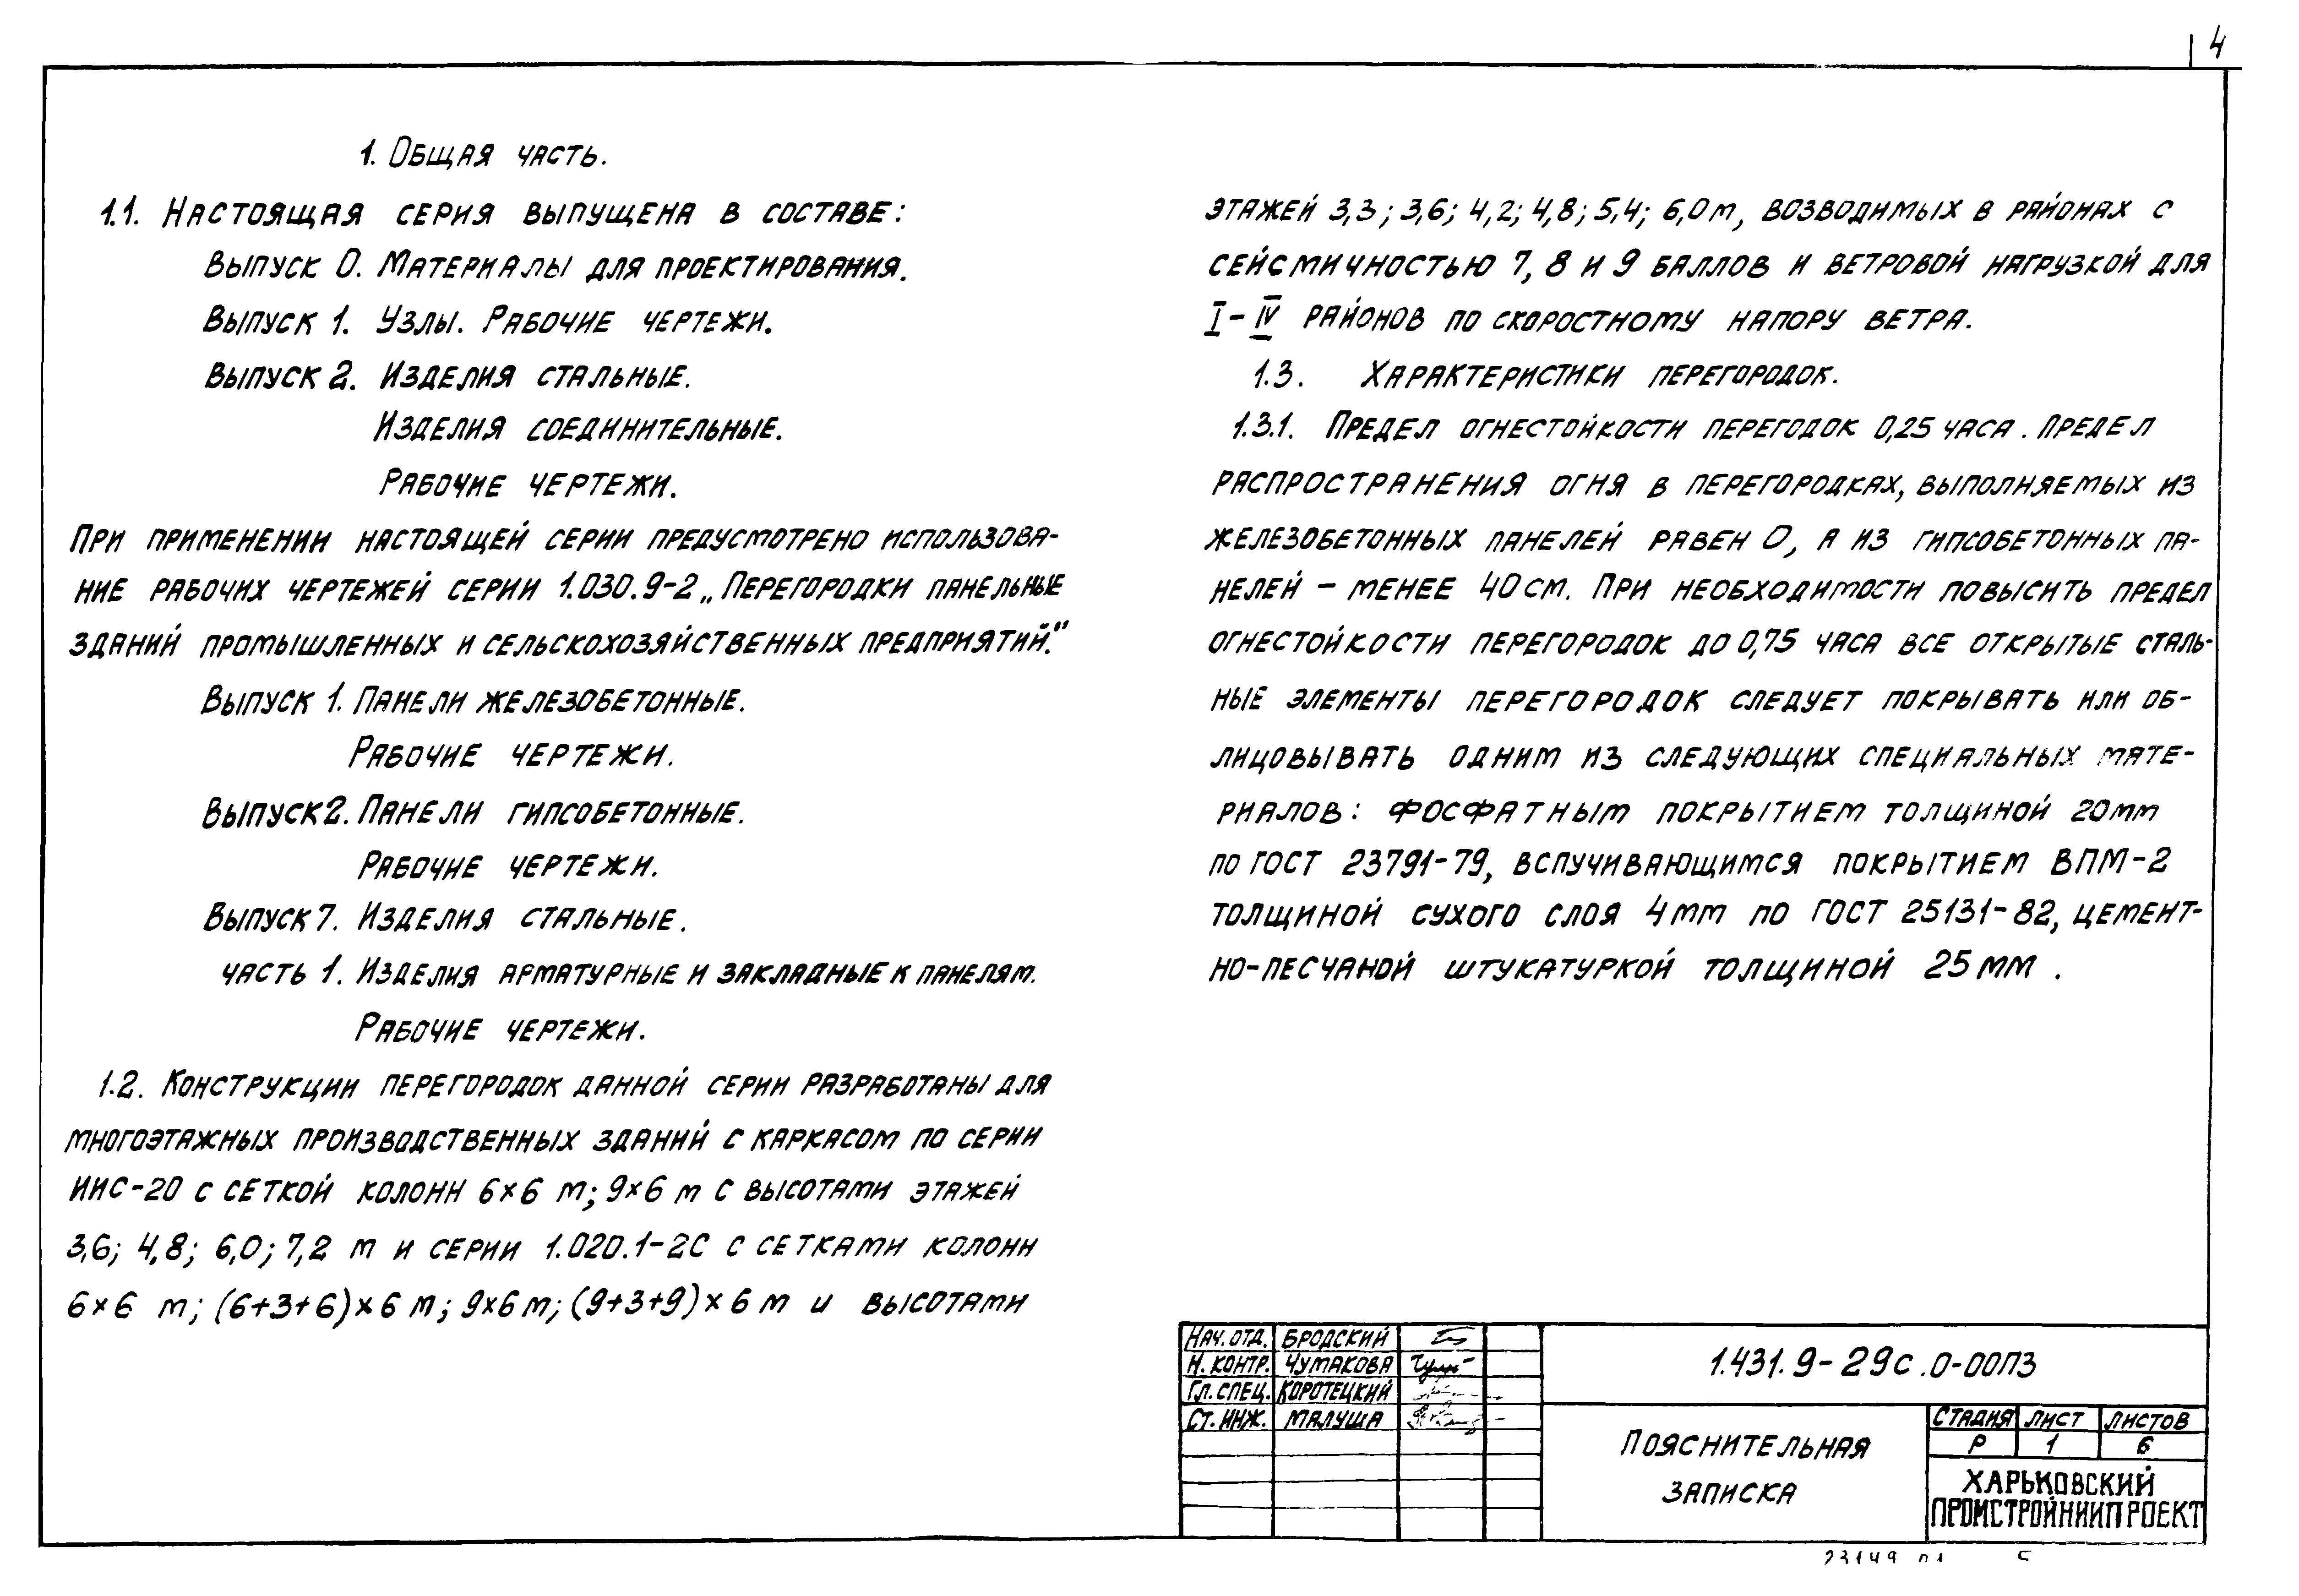 4
1. Общая часть.
1.1. Настоящая серия выпущена в составе:
Выпуск 0. Материалы для проектирования.
Выпуск 1. Узлы. Рабочие чертежи.
Выпуск 2. Изделия стальные.
Изделия соединительные.
Рабочие чертежи.
При применении настоящей серии предусмотрено использова-
ние рабочих чертежей серии 1.030.9-2 „Перегородки панельные
зданий промышленных и сельскохозяйственных предприятий."
Выпуск 1. Панели железобетонные.
Рабочие чертежи.
Выпуск 2. Панели гипсобетонные.
Рабочие чертежи.
Выпуск 7. Изделия стальные.
часть 1. Изделия арматурные и закладные к панелям.
Рабочие чертежи.
1.2. Конструкции перегородок данной серии разработаны для
многоэтажных производственных зданий с каркасом по серии
ИИС-20 с сеткой колонн 6×6 м; 9×6 м с высотами этажей
3,6; 4,8; 6,0; 7,2 м и серии 1.020.1-2С с сетками колонн
6×6 м; (6+3+6)×6 м; 9×6 м; (9+3+9)×6 м и высотами
этажей 3,3; 3,6; 4,2; 4,8; 5,4; 6,0 м, возводимых в районах с
сейсмичностью 7, 8 и 9 баллов и ветровой нагрузкой для
I – IV районов по скоростному напору ветра.
1.3. Характеристики перегородок.
1.3.1. Предел огнестойкости перегодок 0,25 часа. Предел
распространения огня в перегородках, выполняемых из
железобетонных панелей равен 0, а из гипсобетонных па-
нелей – менее 40 см. При необходимости повысить предел
огнестойкости перегородок до 0,75 часа все открытые сталь-
ные элементы перегородок следует покрывать или об-
лицовывать одним из следующих специальных мате-
риалов: фосфатным покрытием толщиной 20 мм
по ГОСТ 23791-79, вспучивающимся покрытием ВПМ-2
толщиной сухого слоя 4 мм по ГОСТ 25131-82, цемент-
но-песчаной штукатуркой толщиной 25 мм.
Нач. отд. Бродский
Н. контр. Чумакова
Гл. спец. Коротецкий
Ст. инж. Малуша
1.431.9-29с.0-00ПЗ
Пояснительная
записка
Стадия Лист Листов
Р 1 6
ХАРЬКОВСКИЙ
ПРОМСТРОЙНИИПРОЕКТ
23149 01 5